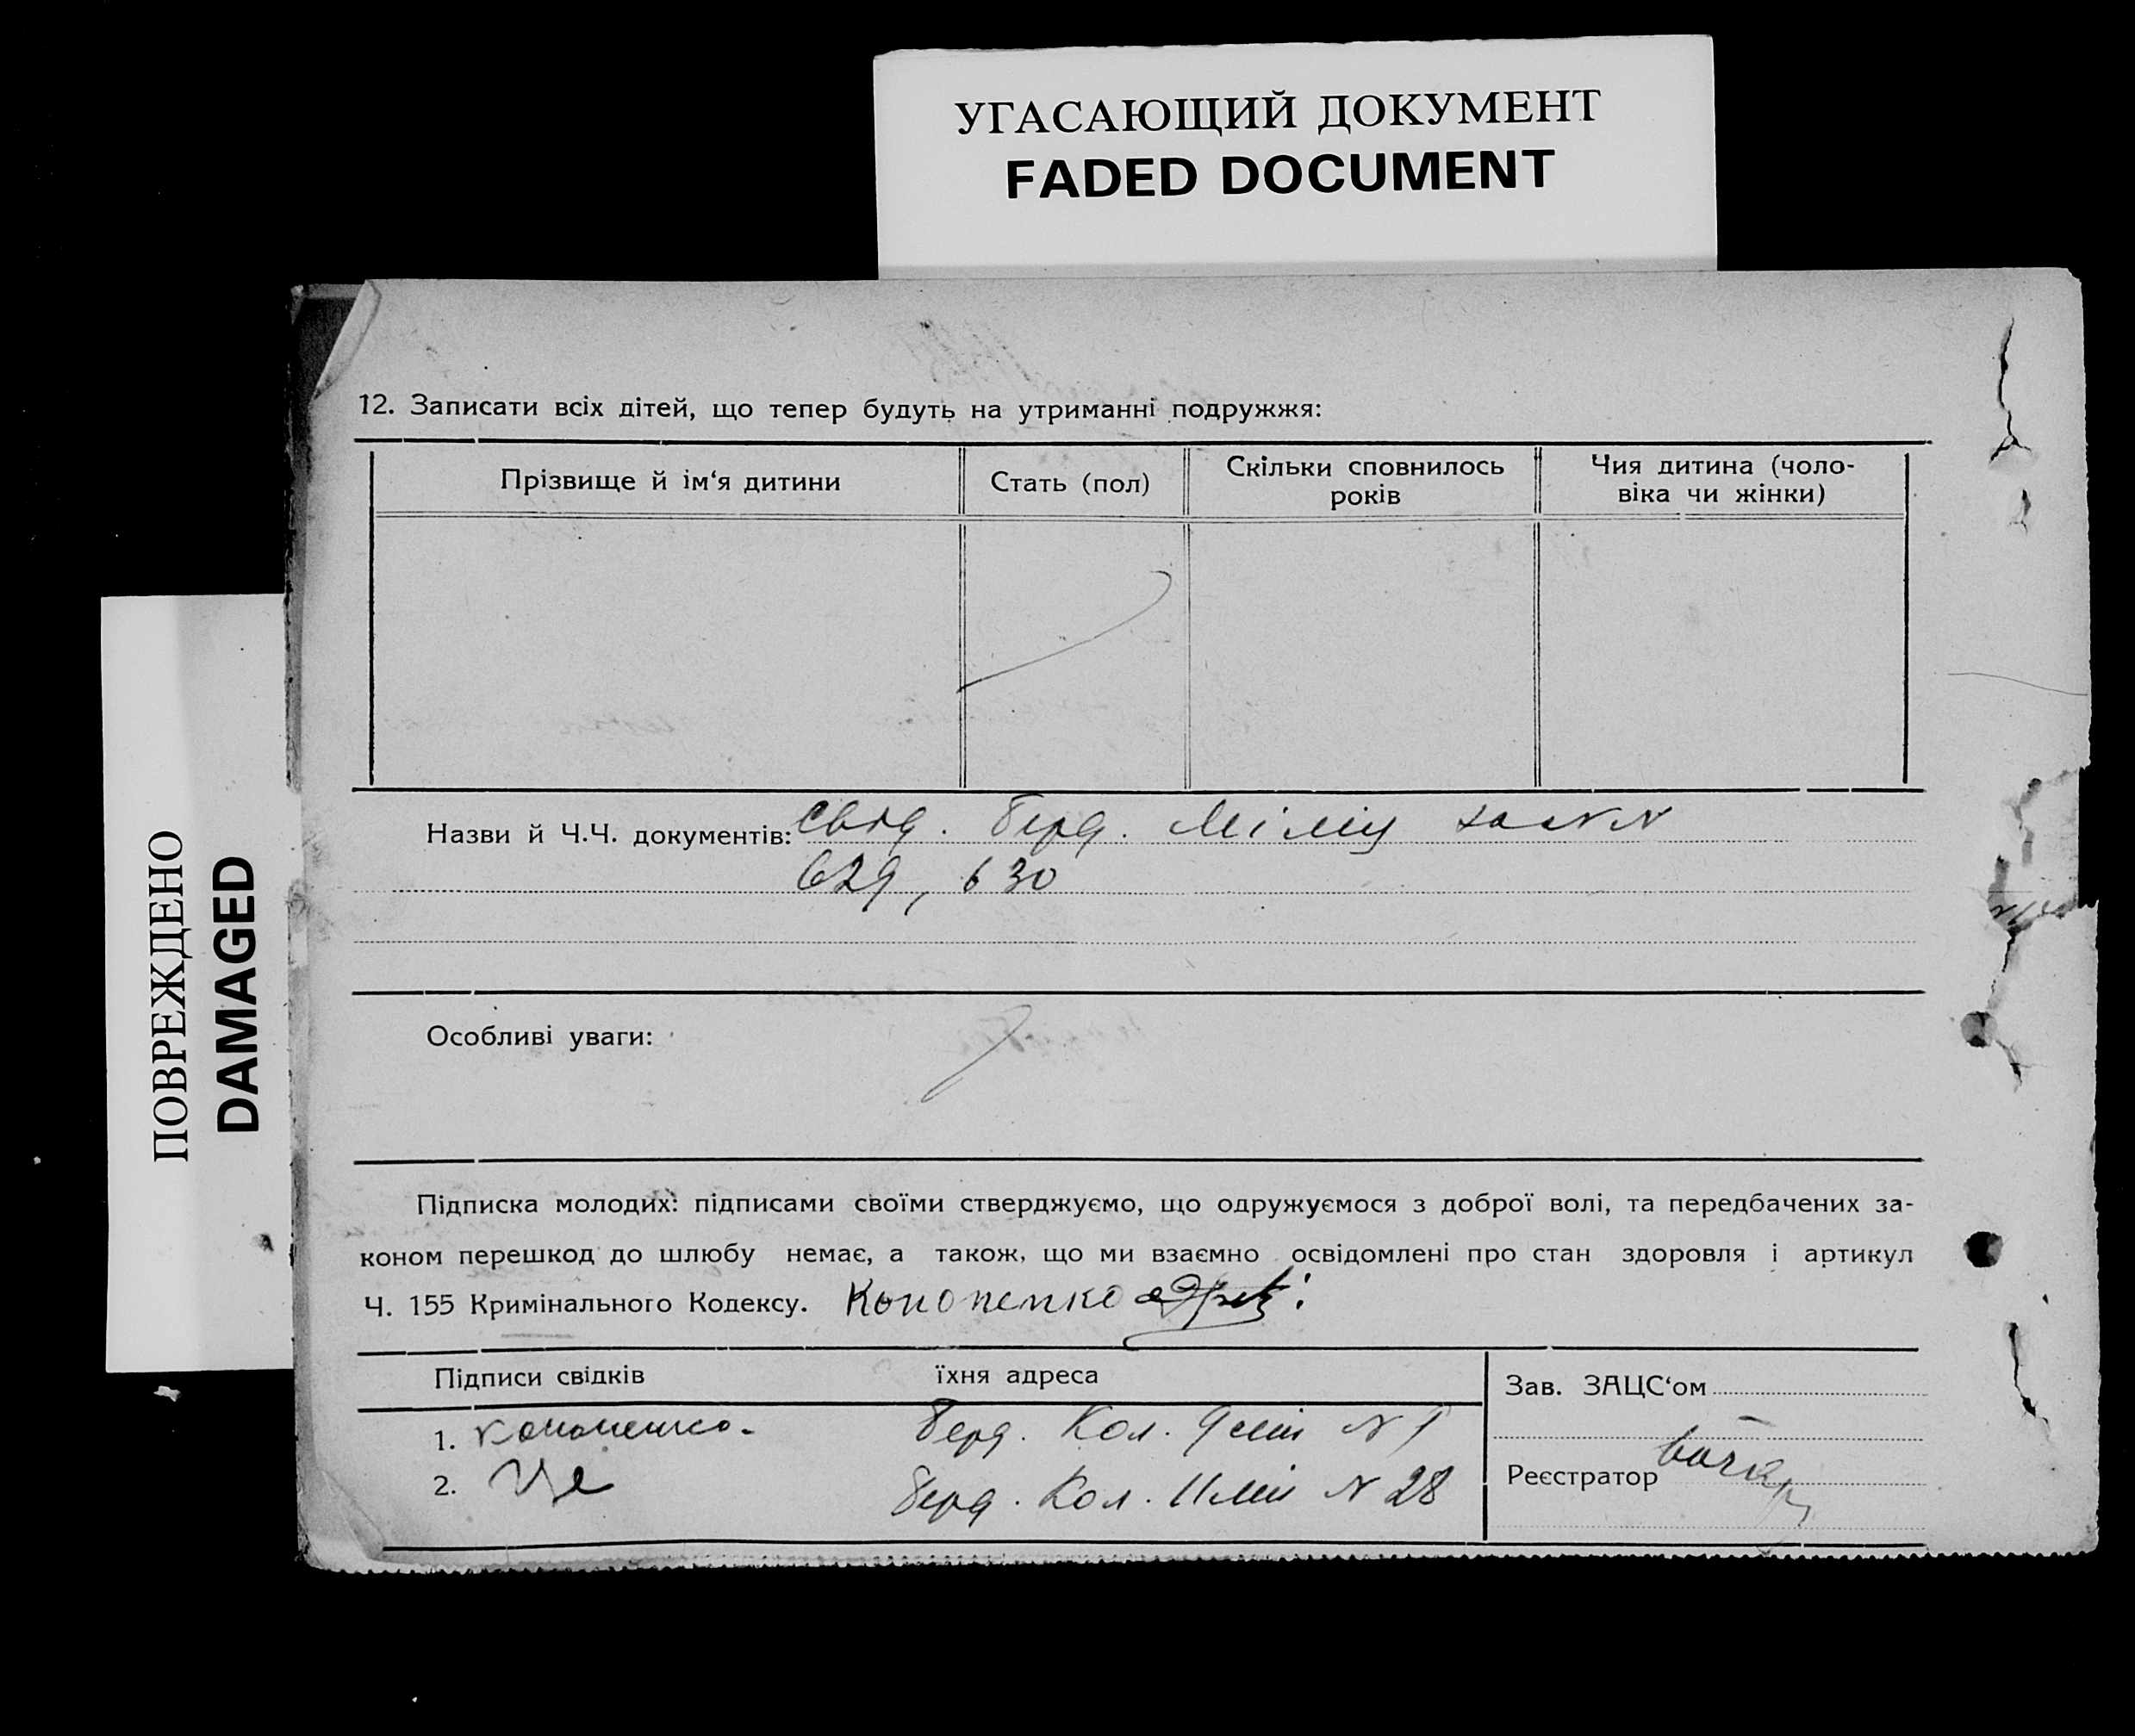 УГАСАЮЩИЙ ДОКУМЕНТ
FADED DOCUMENT
ПОВРЕЖДЕНО
DAMAGED
12. Записати всіх дітей, що тепер будуть на утриманні подружжя:
Прізвище й ім‘я дитини
Стать (пол)
Скільки сповнилось
років
Чия дитина (чоло-
віка чи жінки)
Назви й Ч.Ч. документів: Свід. Берд. Міліц за NN
629, 630
Особливі уваги:
Підписка молодих: підписами своїми стверджуємо, що одружуємося з доброї волі, та передбачених за-
коном перешкод до шлюбу немає, а також, що ми взаємно освідомлені про стан здоровля і артикул
Ч. 155 Кримінального Кодексу. Кононенко
Підписи свідків
їхня адреса
1. Кононенко. Берд. Кол. 9 лін N
2. Берд. Кол. 11 лін N 28
Зав. ЗАЦС‘ом
Реєстратор